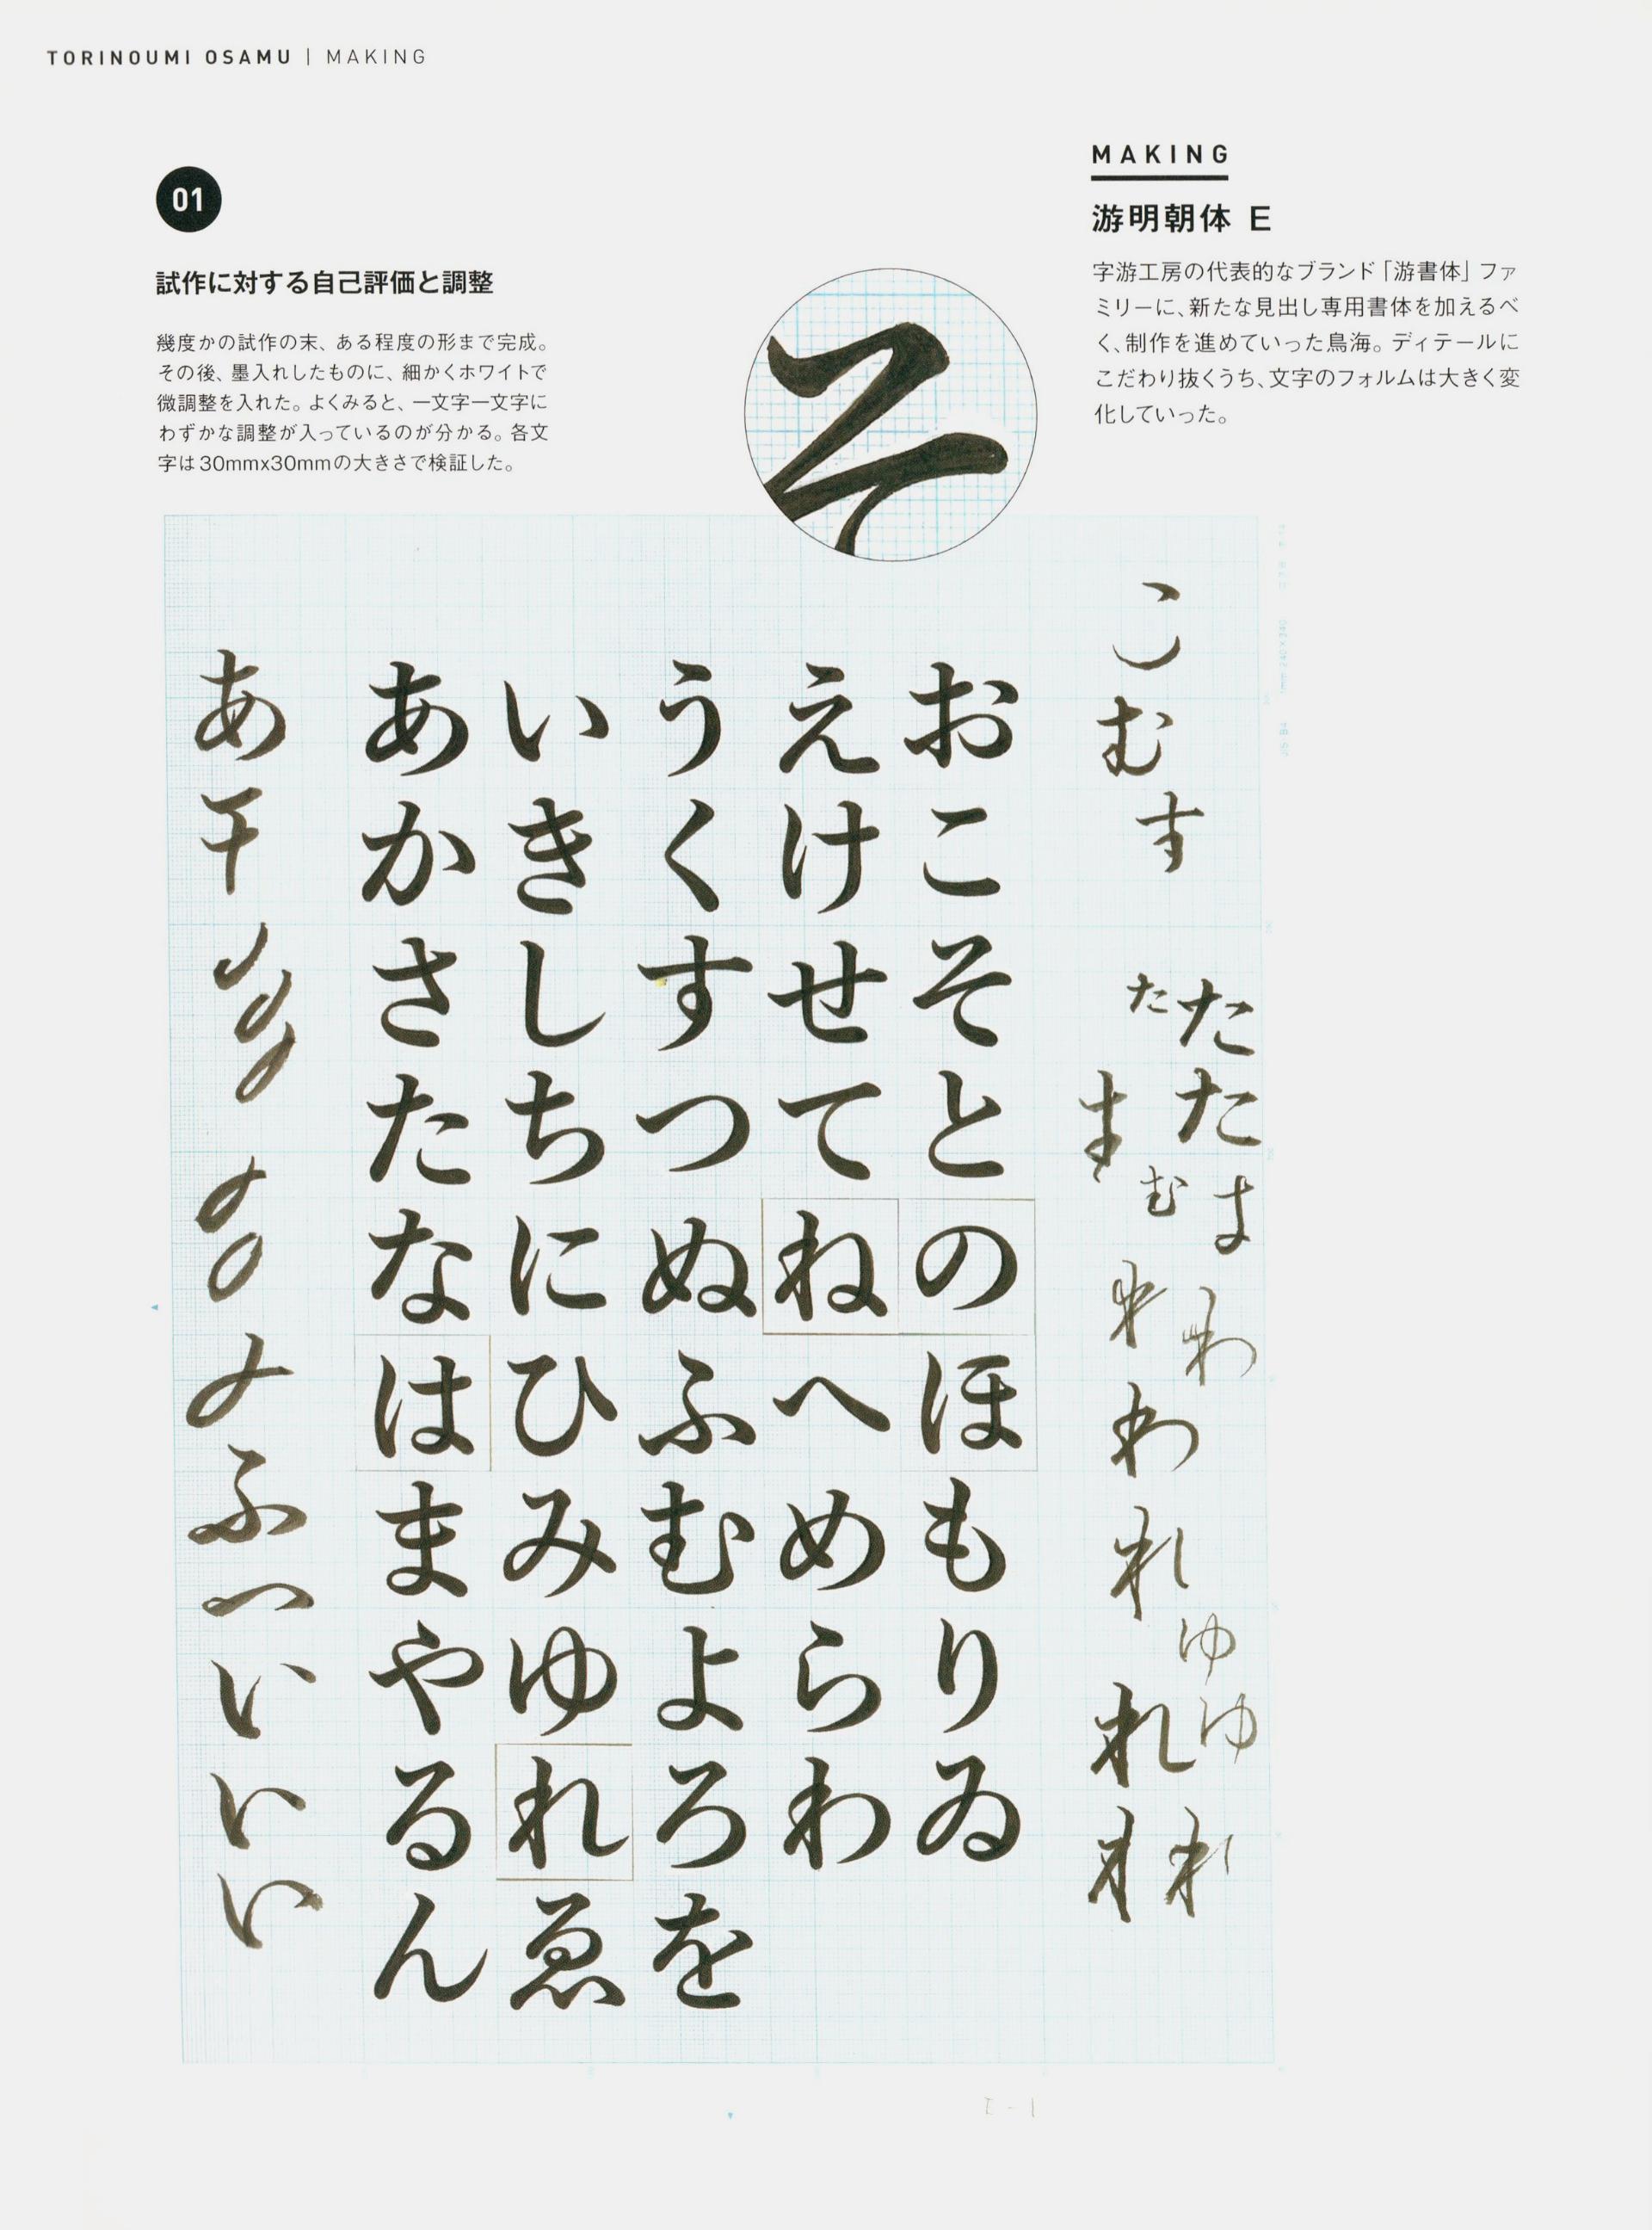 TORINOUMI OSAMU | MAKING
MAKING
游明朝体 E
字游工房の代表的なブランド「游書体」ファ
ミリーに、新たな見出し専用書体を加えるべ
く、制作を進めていった鳥海。ディテールに
こだわり抜くうち、文字のフォルムは大きく変
化していった。
01
試作に対する自己評価と調整
幾度かの試作の末、ある程度の形まで完成。
その後、墨入れしたものに、細かくホワイトで
微調整を入れた。よくみると、一文字一文字に
わずかな調整が入っているのが分かる。各文
字は30mmx30mmの大きさで検証した。
そ
こむす
たた
たま
む
わわ
わ
れ
ゆ
れゆ
おこそとのほもりゐ
えけせてねへめらわ
うくすつぬふむよろを
いきしちにひみゆれゑ
あかさたなはまやるん
あ
ふ
いいい
E-1